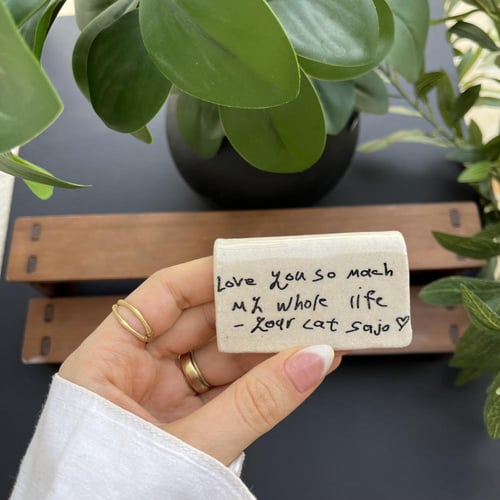 Love you so mach
my whole life
- your cat sajo♡